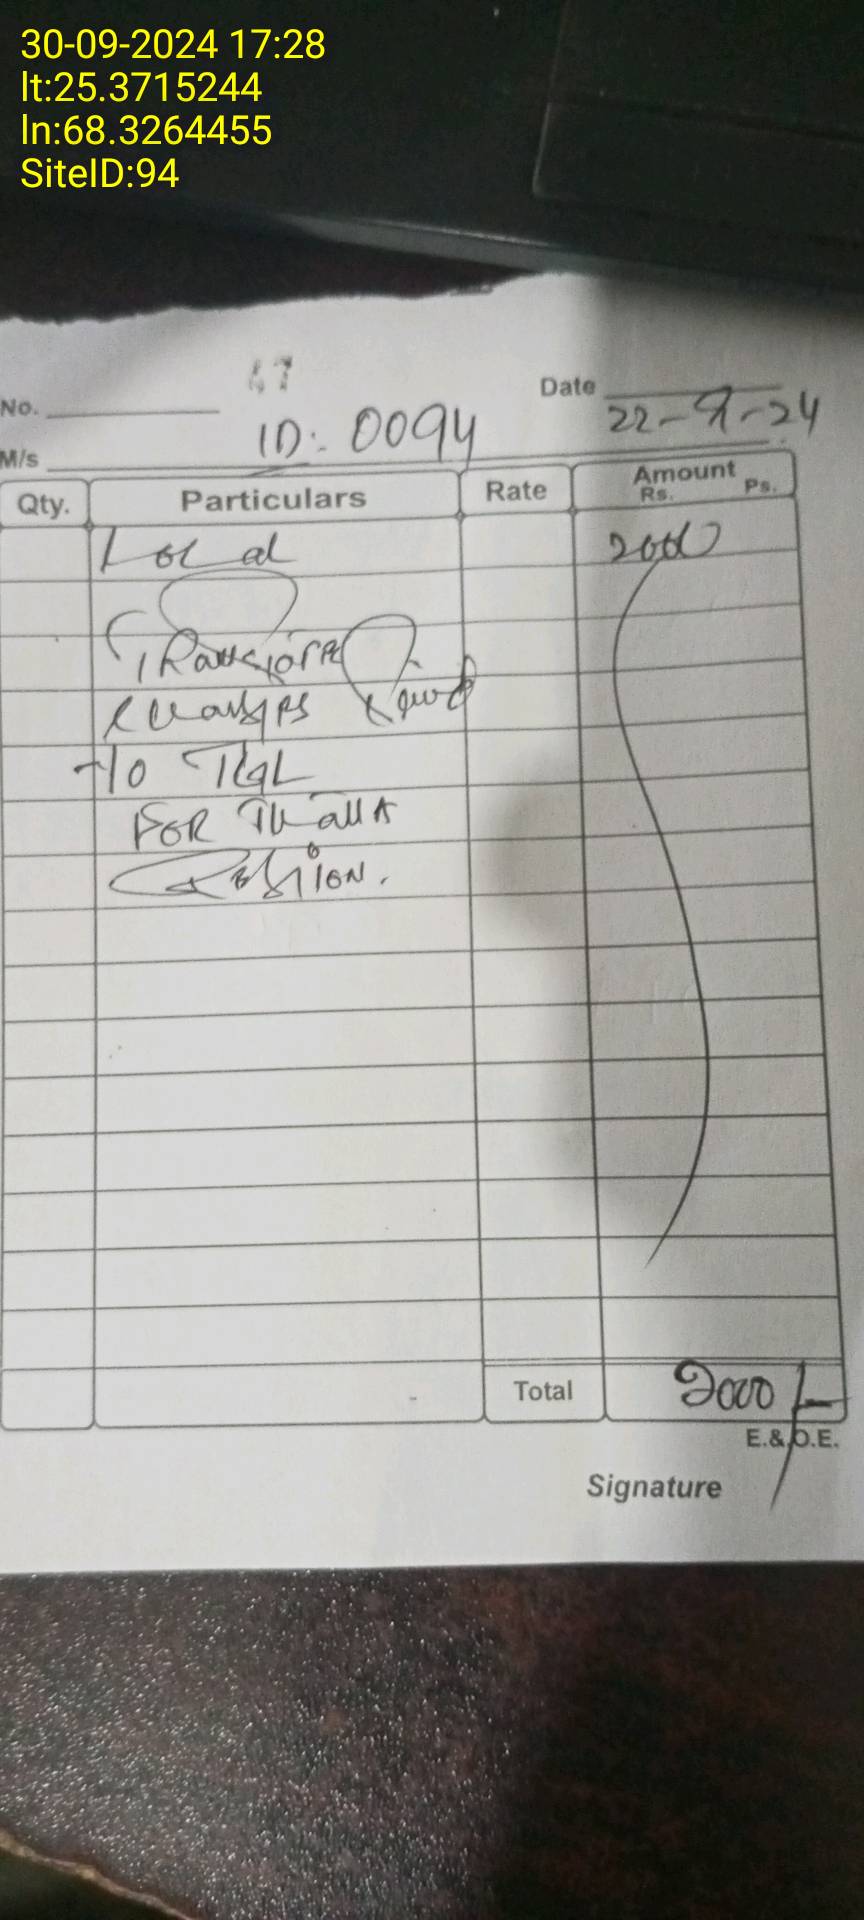 30-09-2024 17:28
lt:25.3715244
ln:68.3264455
SiteID:94
47
No.
Date 22-9-24
ID: 0094
M/s
Qty. Particulars Rate Amount Rs. Ps.
Local 2000
to
FOR
Total 2000/-
E.&.O.E.
Signature